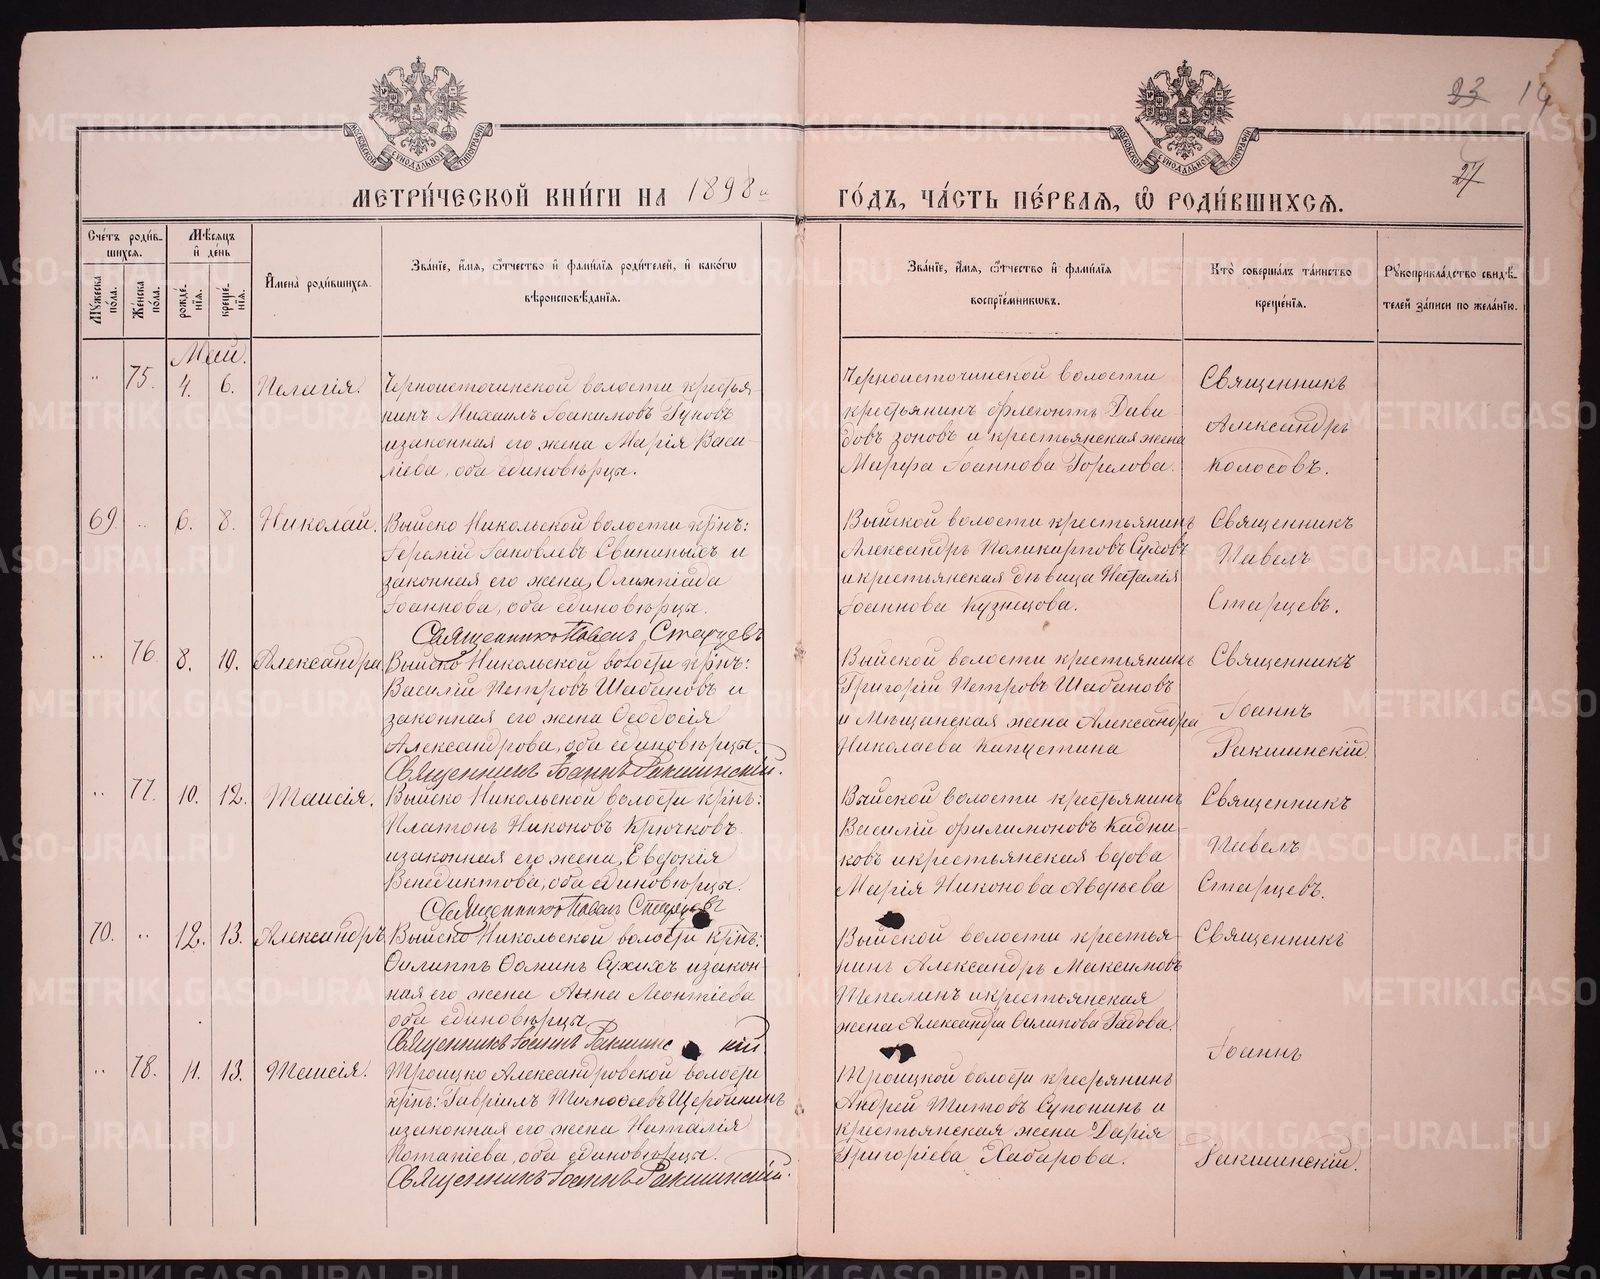 23 14
27
МОСКОВСКОЙ СѴНОДАЛЬНОЙ ТИПОГРАФІИ
МОСКОВСКОЙ СѴНОДАЛЬНОЙ ТИПОГРАФІИ
МЕТРИ́ЧЕСКОЙ КНИ́ГИ НА 1898й ГО́ДЪ, ЧА́СТЬ ПЕ́РВАѦ, Ѽ РОДИ́ВШИХСѦ.
Сче́тъ роди́в-
шихсѧ.
Мꙋ́жеска по́ла.
Же́нска по́ла.
Мѣ́сѧцъ
и҆ де́нь
рожде́-
нїѧ.
креще́-
нїѧ.
И҆мена̀ роди́вшихсѧ.
Зва́нїе, и҆́мѧ, ѻ҆́тчество и҆ фами́лїѧ роди́телей, и҆ како́гѡ
вѣроисповѣ́данїѧ.
Зва́нїе, и҆́мѧ, ѻ҆́тчество и҆ фами́лїѧ
воспрїе́мникѡвъ.
Кто̀ соверша́лъ та́инство
креще́нїѧ.
Рꙋкоприкла́дство свидѣ́-
телей за́писи по жела́нїю.
Май.
" 75. 4. 6. Пелагія.
Черноисточинской волости крестья-
нинъ Михаилъ Іоакимовъ Гуновъ
изаконная его жена Марія Васи-
ліева, оба единовѣрцы.
Черноисточинской волости
крестьянинъ Флегонтъ Дави
довъ Зоновъ и крестьянская жена
Марфа Іоаннова Горелова.
Священникъ
Александръ
Колосовъ.
69. " 6. 8. Николай.
Выйско Никольской волости кр҃нъ:
Іеремій Іаковлевъ Свининыхъ и
законная его жена, Олимпіада
Іоаннова, оба единовѣрцы.
Священникъ Павелъ Старцевъ
Выйской волости крестьянинъ
Александръ Поликарповъ Суловъ
и крестьянская дѣвица Наталія
Іоаннова Кузнецова.
Священникъ
Павелъ
Старцевъ.
" 76. 8. 10. Александра
Выйско Никольской волости кр҃нъ:
Василій Петровъ Шабановъ и
законная его жена Ѳеодосія
Александрова, оба единовѣрцы.
Священникъ Іоаннъ Ракшинскій.
Выйской волости крестьянинъ
Григорій Петровъ Шабановъ
и Мѣщанская жена Александра
Николаева Капустина
Священникъ
Іоаннъ
Ракшинскій.
" 77. 10. 12. Таисія.
Выйско Никольской волости кр҃нъ:
Платонъ Никоновъ Крючковъ
изаконная его жена, Евдокія
Венедиктова, оба единовѣрцы.
Священникъ Павелъ Старцевъ
Выйской волости крестьянинъ
Василій Филимоновъ Кадни-
ковъ и крестьянская вдова
Марія Никонова Аверьева
Священникъ
Павелъ
Старцевъ.
70. " 12. 13. Александръ
Выйско Никольской волости кр҃нъ:
Филиппъ Ѳоминъ Сухихъ изакон-
ная его жена Анна Леонтіева
оба единовѣрцы
Священникъ Іоаннъ Ракшинс кій.
Выйской волости крестья-
нинъ Александръ Максимовъ
Шепелинъ и крестьянская
жена Александра Филипова Гадова.
Священникъ
" 78. 11. 13. Таисія.
Троицко Александровской волости
кр҃нъ: Гавріилъ Тимоѳеевъ Щербининъ
изаконная его жена Наталія
Потапіева, оба единовѣрцы.
Священникъ Іоаннъ Ракшинскій.
Троицкой волости крестьянинъ
Андрей Титовъ Супонинъ и
крестьянская жена Дарія
Григоріева Хабарова.
Іоаннъ
Ракшинскій.